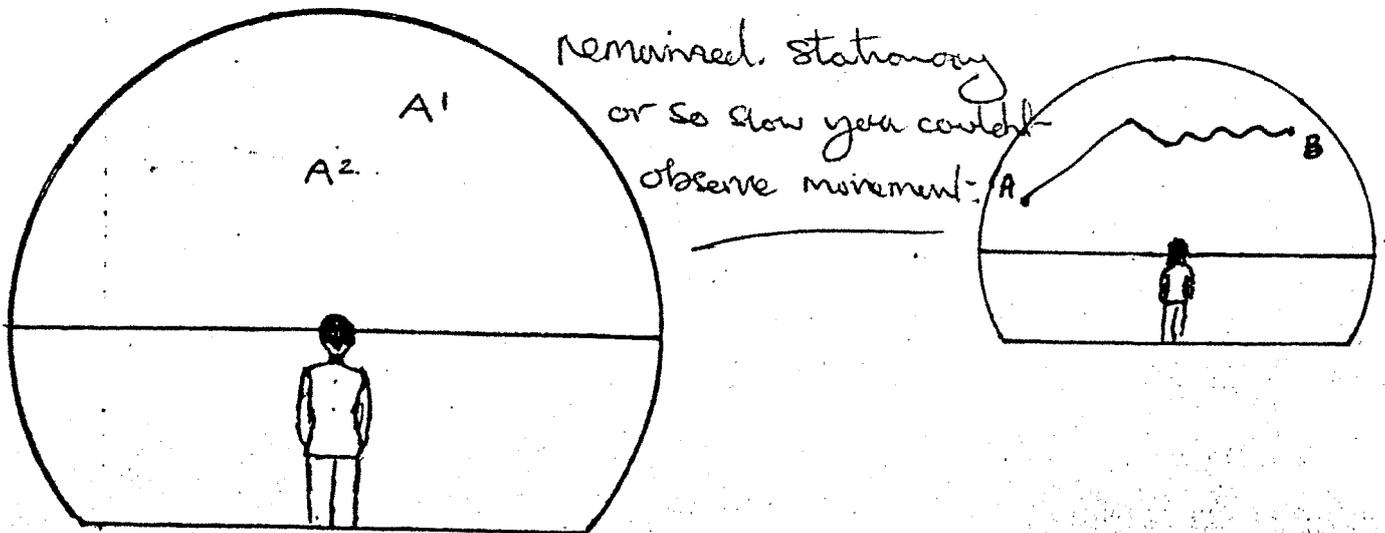 A1
A2
remained. stationary
or so slow you couldn't
observe movement:
A
B